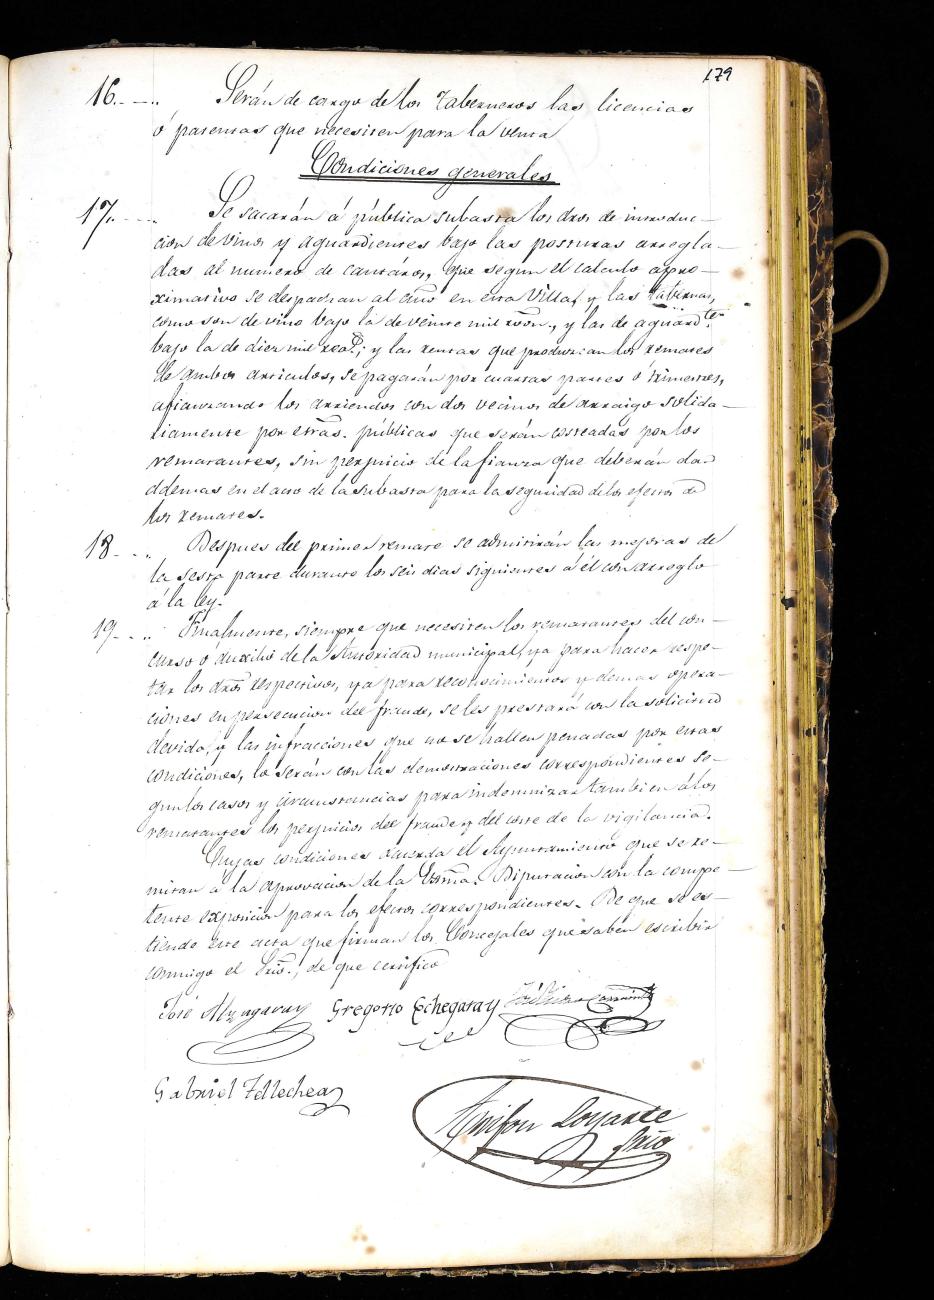 179
16.. Serán de cargo de los Taberneros las licencias
ó patentas que necesiten para la venta
Condiciones generales
17. Se sacarán á pública subasta los dros de introduc-
cion de vinos y aguardientes bajo las posturas arregla-
das al numero de cantáros, que segun el calculo apro-
ximativo se despachan al año en esta Villa, y las tabernas,
como son de vino bajo la de veinte mil rson., y las de aguardtes
bajo la de diez mil reas; y las rentas que produzcan los remates
de ambos articulos, se pagarán por cuartas partes ó trimestres,
afianzando los arriendos con dos vecinos de arraigo solida-
riamente por etras. públicas que serán costeadas por los
rematantes, sin perjuicio de la fianza que deberán dar
ademas en el acto de la subasta para la seguridad de los efectos de
los remates.
18.. Despues del primer remate se admitirán las mejoras de
la sesta parte durante los seis dias siguientes á él con arreglo
á la ley.
19.. Finalmente, siempre que necesiten los rematantes del con-
curso ó auxilio de la Autoridad municipal, ya para hacer respe-
tar los dros respectivos, ya para reconocimientos y demas opera-
ciones en persecucion del fraude, se les prestará con la solicitud
devida, y las infracciones que no se hallen penadas por estas
condiciones, lo serán con las demostraciones correspondientes se-
gun los casos y circunstancias para indemnizar tambien á los
rematantes los perjuicios del fraude y del coste de la vigilancia.
Cuyas condiciones acuerda el Ayuntamiento que se re-
mitan á la aprovacion de la Exma. Diputacion con la compe-
tente exposicion para los efectos correspondientes. De que se es-
tiende este acta que firman los Concejales que saben escribir
conmigo el Srio., de que certifico
José Alzugaray Gregorio Echegaray
Gabriel Tellechea
Loyarte
Srio